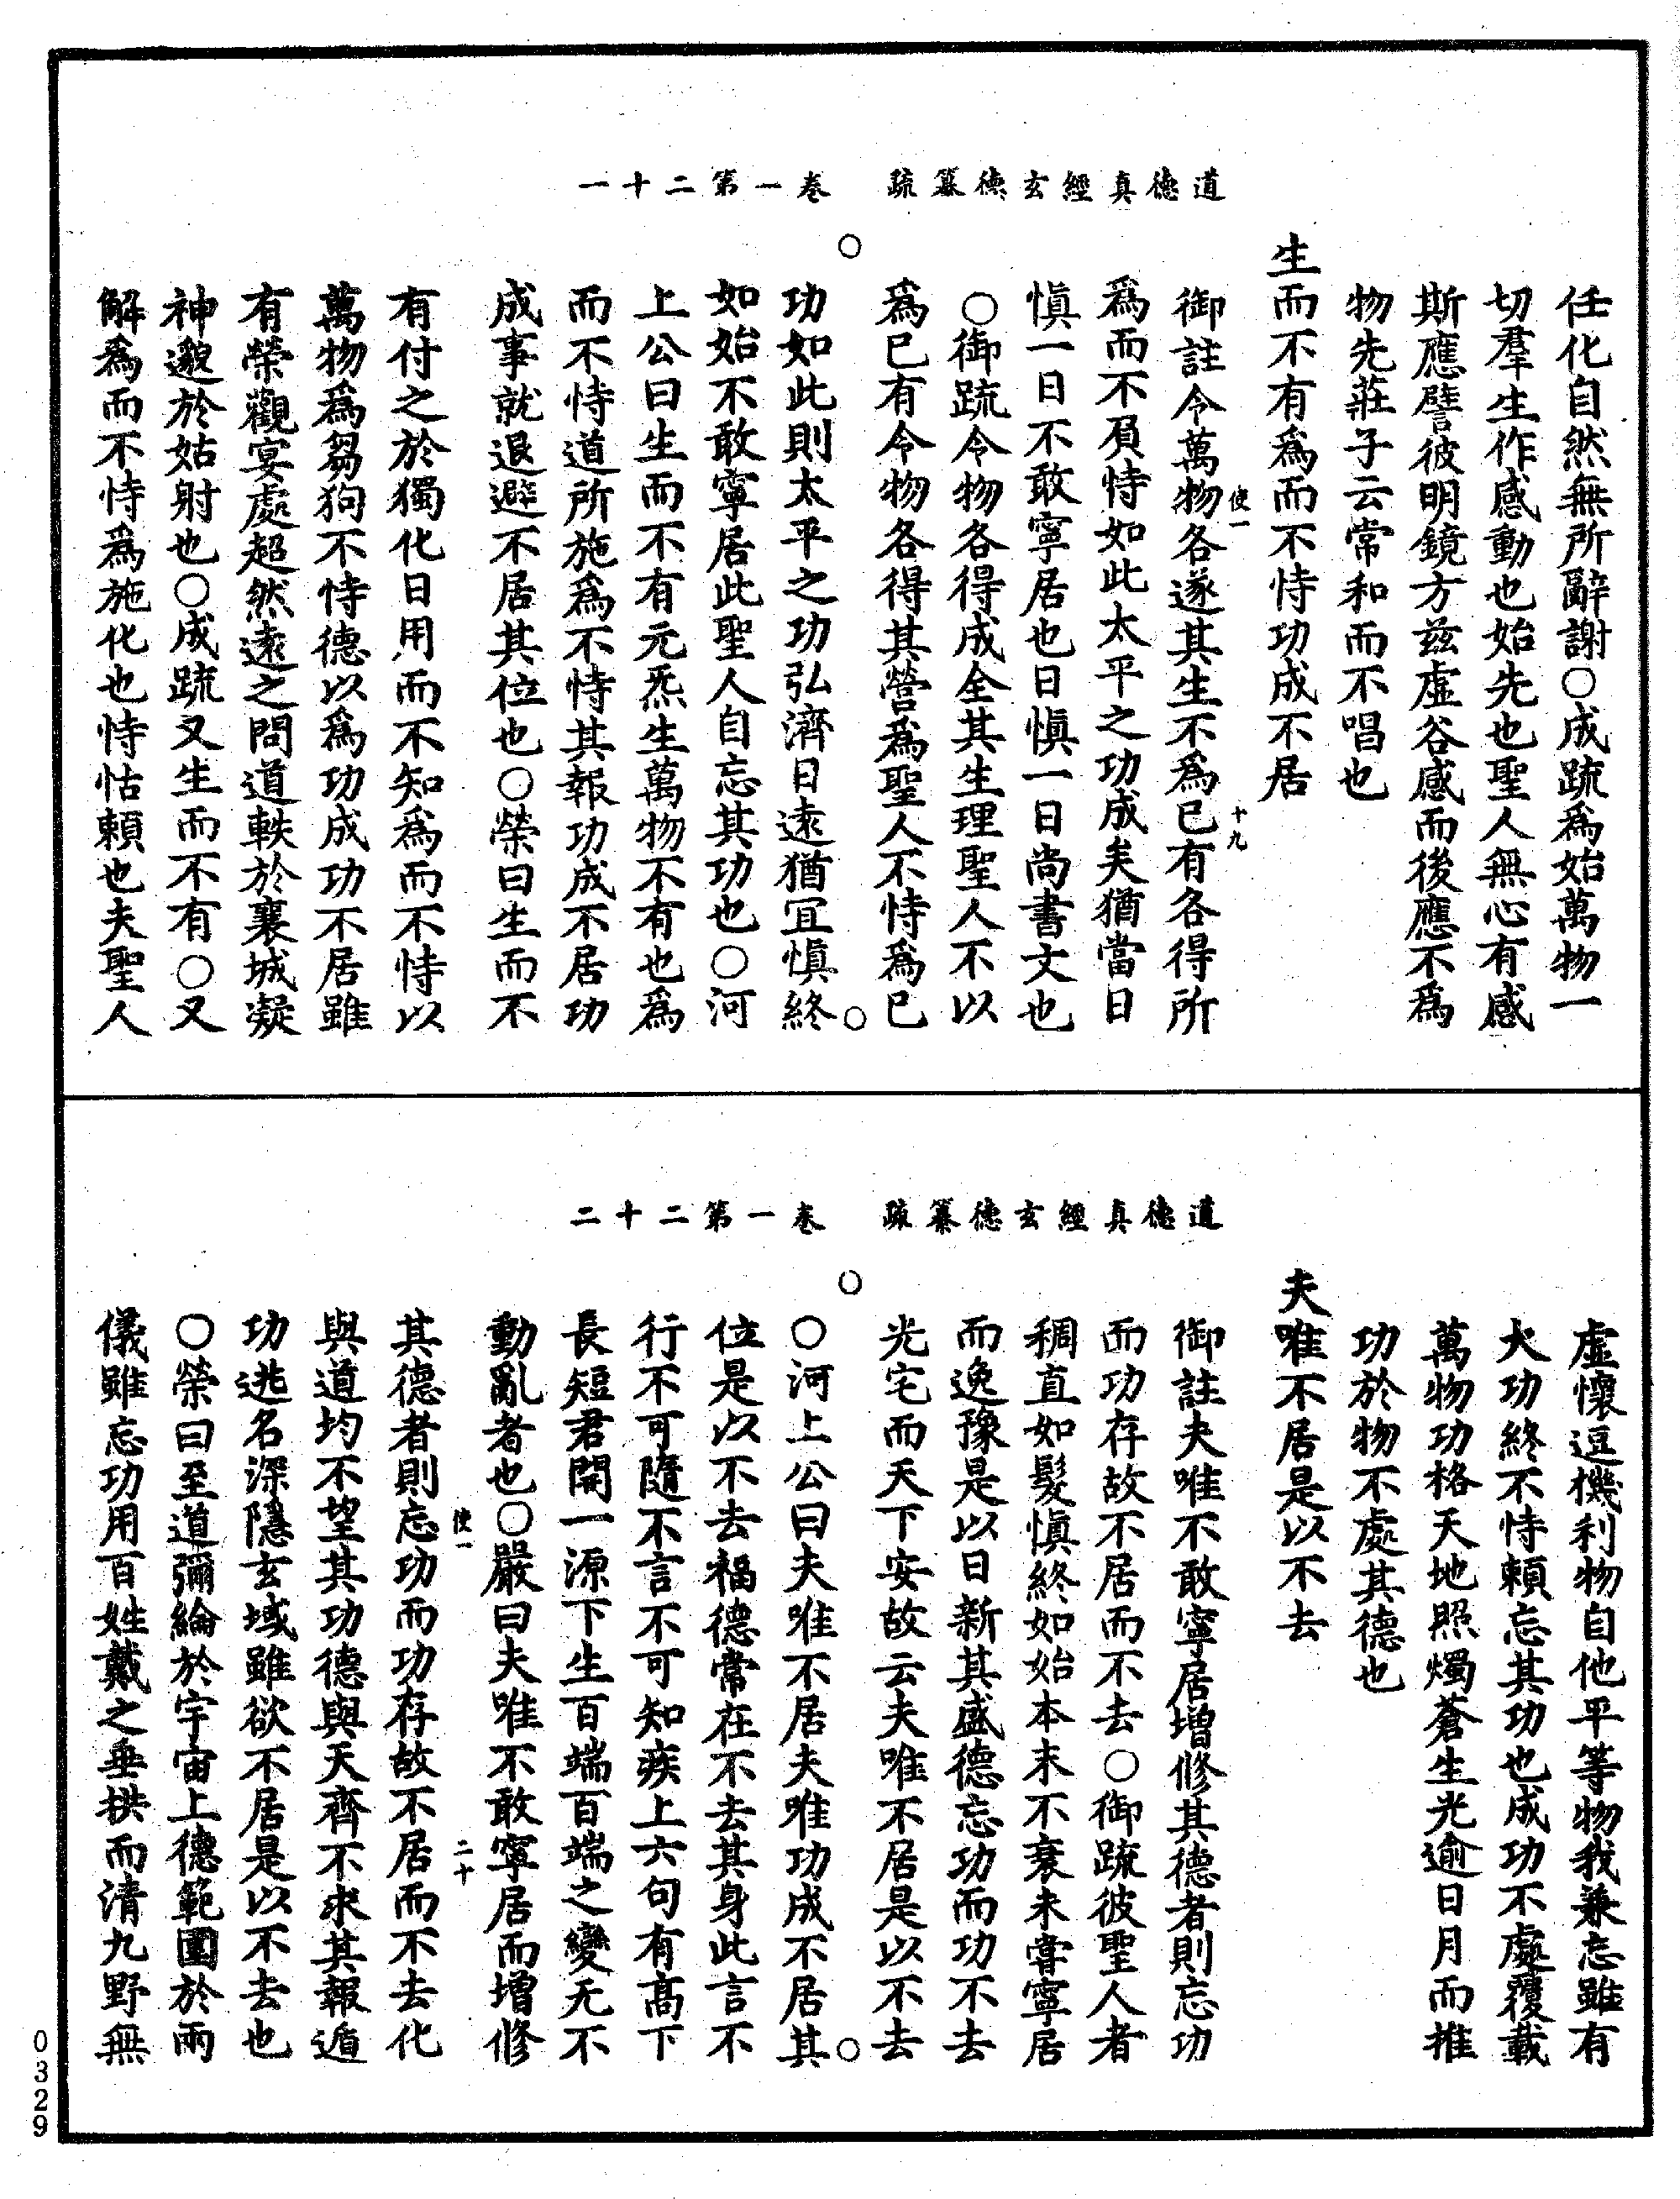 道德真經玄德纂疏　卷一第二十一
任化自然無所辭謝○成疏爲始萬物一
切羣生作感動也始先也聖人無心有感
斯應譬彼明鏡方兹虛谷感而後應不爲
物先莊子云常和而不唱也
生而不有爲而不恃功成不居
御註令萬物各遂其生不爲已有各得所
使一　十九
爲而不負恃如此太平之功成矣猶當日
愼一日不敢寧居也日愼一日尚書文也
○御疏令物各得成全其生理聖人不以
爲已有令物各得其營爲聖人不恃爲已
功如此則太平之功弘濟日遠猶冝愼終
如始不敢寧居此聖人自忘其功也○河
上公曰生而不有元炁生萬物不有也爲
而不恃道所施爲不恃其報功成不居功
成事就退避不居其位也○榮曰生而不
有付之於獨化日用而不知爲而不恃以
萬物爲芻狗不恃德以爲功成功不居雖
有榮觀宴處超然遠之問道軼於襄城凝
神邈於姑射也○成疏又生而不有○又
解爲而不恃爲施化也恃怙賴也夫聖人
道德真經玄德纂疏　卷一第二十二
虛懷逗機利物自他平等物我兼忘雖有
大功終不恃賴忘其功也成功不處覆載
萬物功格天地照燭蒼生光逾日月而推
功於物不處其德也
夫唯不居是以不去
御註夫唯不敢寧居增修其德者則忘功
而功存故不居而不去○御疏彼聖人者
稠直如髮愼終如始本末不衰未甞寧居
而逸豫是以日新其盛德忘功而功不去
光宅而天下安故云夫唯不居是以不去
○河上公曰夫唯不居夫唯功成不居其
位是以不去福德常在不去其身此言不
行不可隨不言不可知疾上六句有髙下
長短君開一源下生百端百端之變无不
動亂者也○嚴曰夫唯不敢寧居而增修
使一　二十
其德者則忘功而功存故不居而不去化
與道均不望其功德與天齊不求其報遁
功逃名深隱玄域雖欲不居是以不去也
○榮曰至道彌綸於宇宙上德範圍於兩
儀雖忘功用百姓戴之垂拱而清九野無
0329